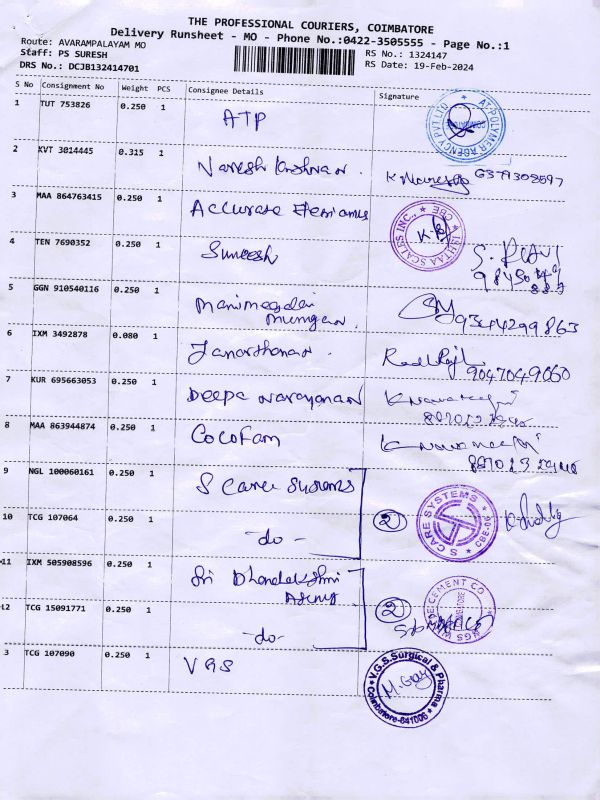 THE PROFESSIONAL COURIERS, COIMBATORE
Delivery Runsheet - MO - Phone No.:0422-3505555 - Page No.:1
Route: AVARAMPALAYAM MO
RS No.: 1324147
Staff: PS SURESH
RS Date: 19-Feb-2024
DRS No.: DCJB132414701
S No Consignment No Weight PCS Consignee Details Signature
1 TUT 753826 0.250 1 ATP
AT POLYMER AGENCY PVT LTD
2 KVT 3014445 0.315 1 Naresh
3 MAA 864763415 0.250 1 Accurate
ISHTAA SCALES INC., CBE
4 TEN 7690352 0.250 1 Sumeesh
5 GGN 910540116 0.250 1 Manimegalai
Murugan 9344299863
6 IXM 3492878 0.080 1 Janarthanan
9047049060
7 KUR 695663053 0.250 1 Deepa Narayanan
8 MAA 863944874 0.250 1 Cocofam
9 NGL 100060161 0.250 1 S Care Systems
S CARE SYSTEMS CBE-06
10 TCG 107064 0.250 1 -do- 2
11 IXM 505908596 0.250 1 Sri Dhanalakshmi
Agency
12 TCG 15091771 0.250 1 -do- 2
3 TCG 107090 0.250 1 VGS
V.G.S.Surgical & Pharma
Coimbatore-641006